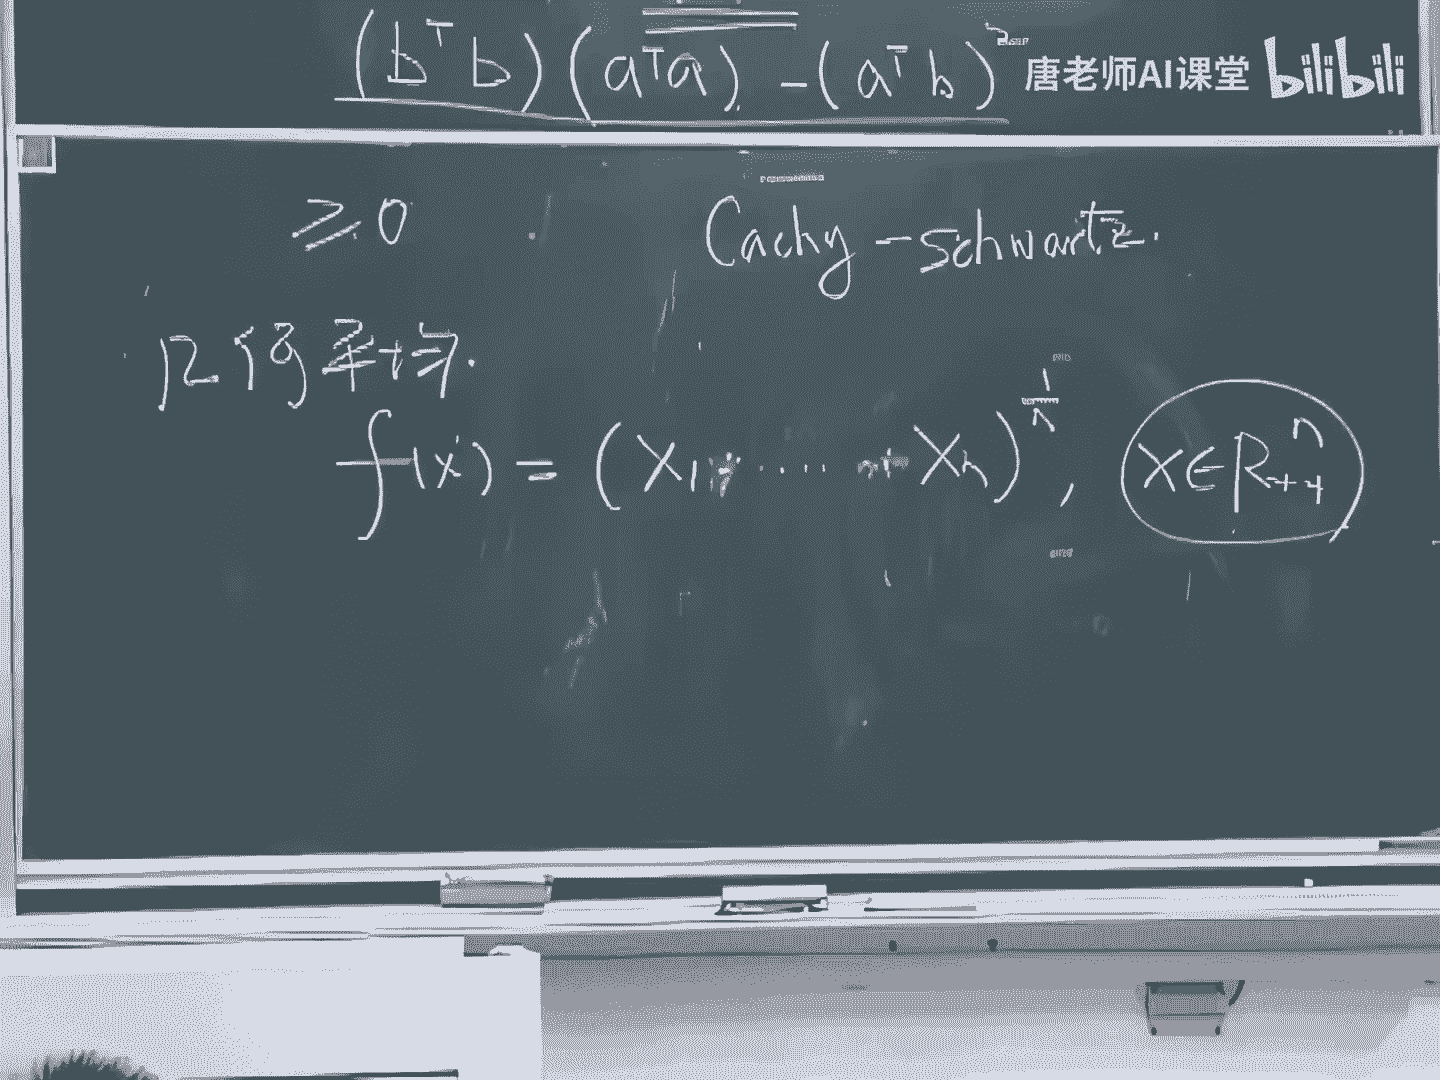 (bᵀb)(aᵀa) - (aᵀb)²
唐老师AI课堂 bilibili
≥0 Cachy-Schwartz.
几何平均.
f(x) = (x₁ ····· xₙ)^(1/n), x∈R₊₊ⁿ